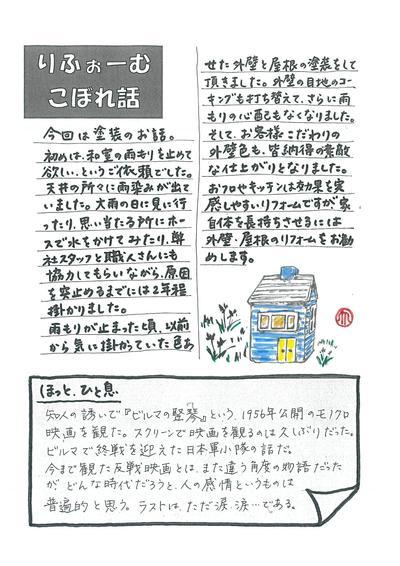 りふぉーむ
こぼれ話
今回は塗装のお話。
初めは、和室の雨もりを止めて
欲しい、というご依頼でした。
天井の所々に雨染みが出て
いました。大雨の日に見に行
ったり、思い当たる所にホー
スで水をかけてみたり、弊
社スタッフと職人さんにも
協力してもらいながら、原因
を突止めるまでには2年程
掛かりました。
雨もりが止まった頃、以前
から気に掛かっていた色あ
せた外壁と屋根の塗装をして
頂きました。外壁の目地のコー
キングも打ち替えて、さらに雨
もりの心配もなくなりました。
そして、お客様こだわりの
外壁色も、皆納得の素敵
な仕上がりとなりました。
おフロやキッチンは効果を実
感しやすいリフォームですが家
自体を長持ちさせるには
外壁・屋根のリフォームをお勧
めします。
ほっと、ひと息
知人の誘いで『ビルマの竪琴』という、1956年公開のモノクロ
映画を観た。スクリーンで映画を観るのは久しぶりだった。
ビルマで終戦を迎えた日本軍小隊の話だ。
今まで観た反戦映画とは、また違う角度の物語だった
が どんな時代だろうと、人の感情というものは
普遍的と思う。ラストは、ただ涙、涙…である。